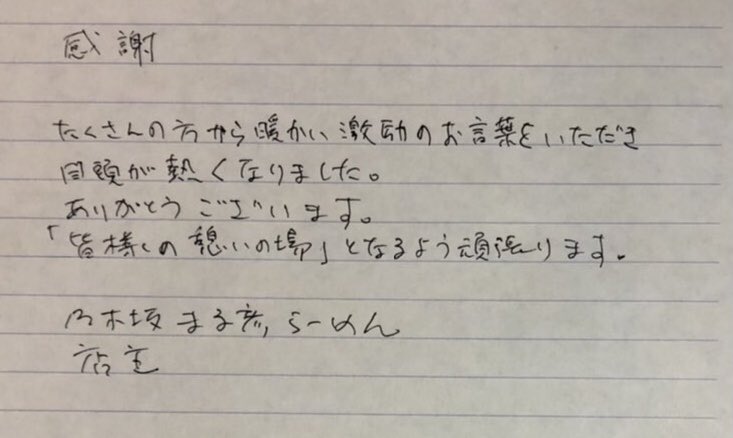 感謝
たくさんの方から暖かい激励のお言葉をいただき
目頭が熱くなりました。
ありがとうございます。
「皆様の憩いの場」となるよう頑張ります。
乃木坂 まる彦らーめん
店主